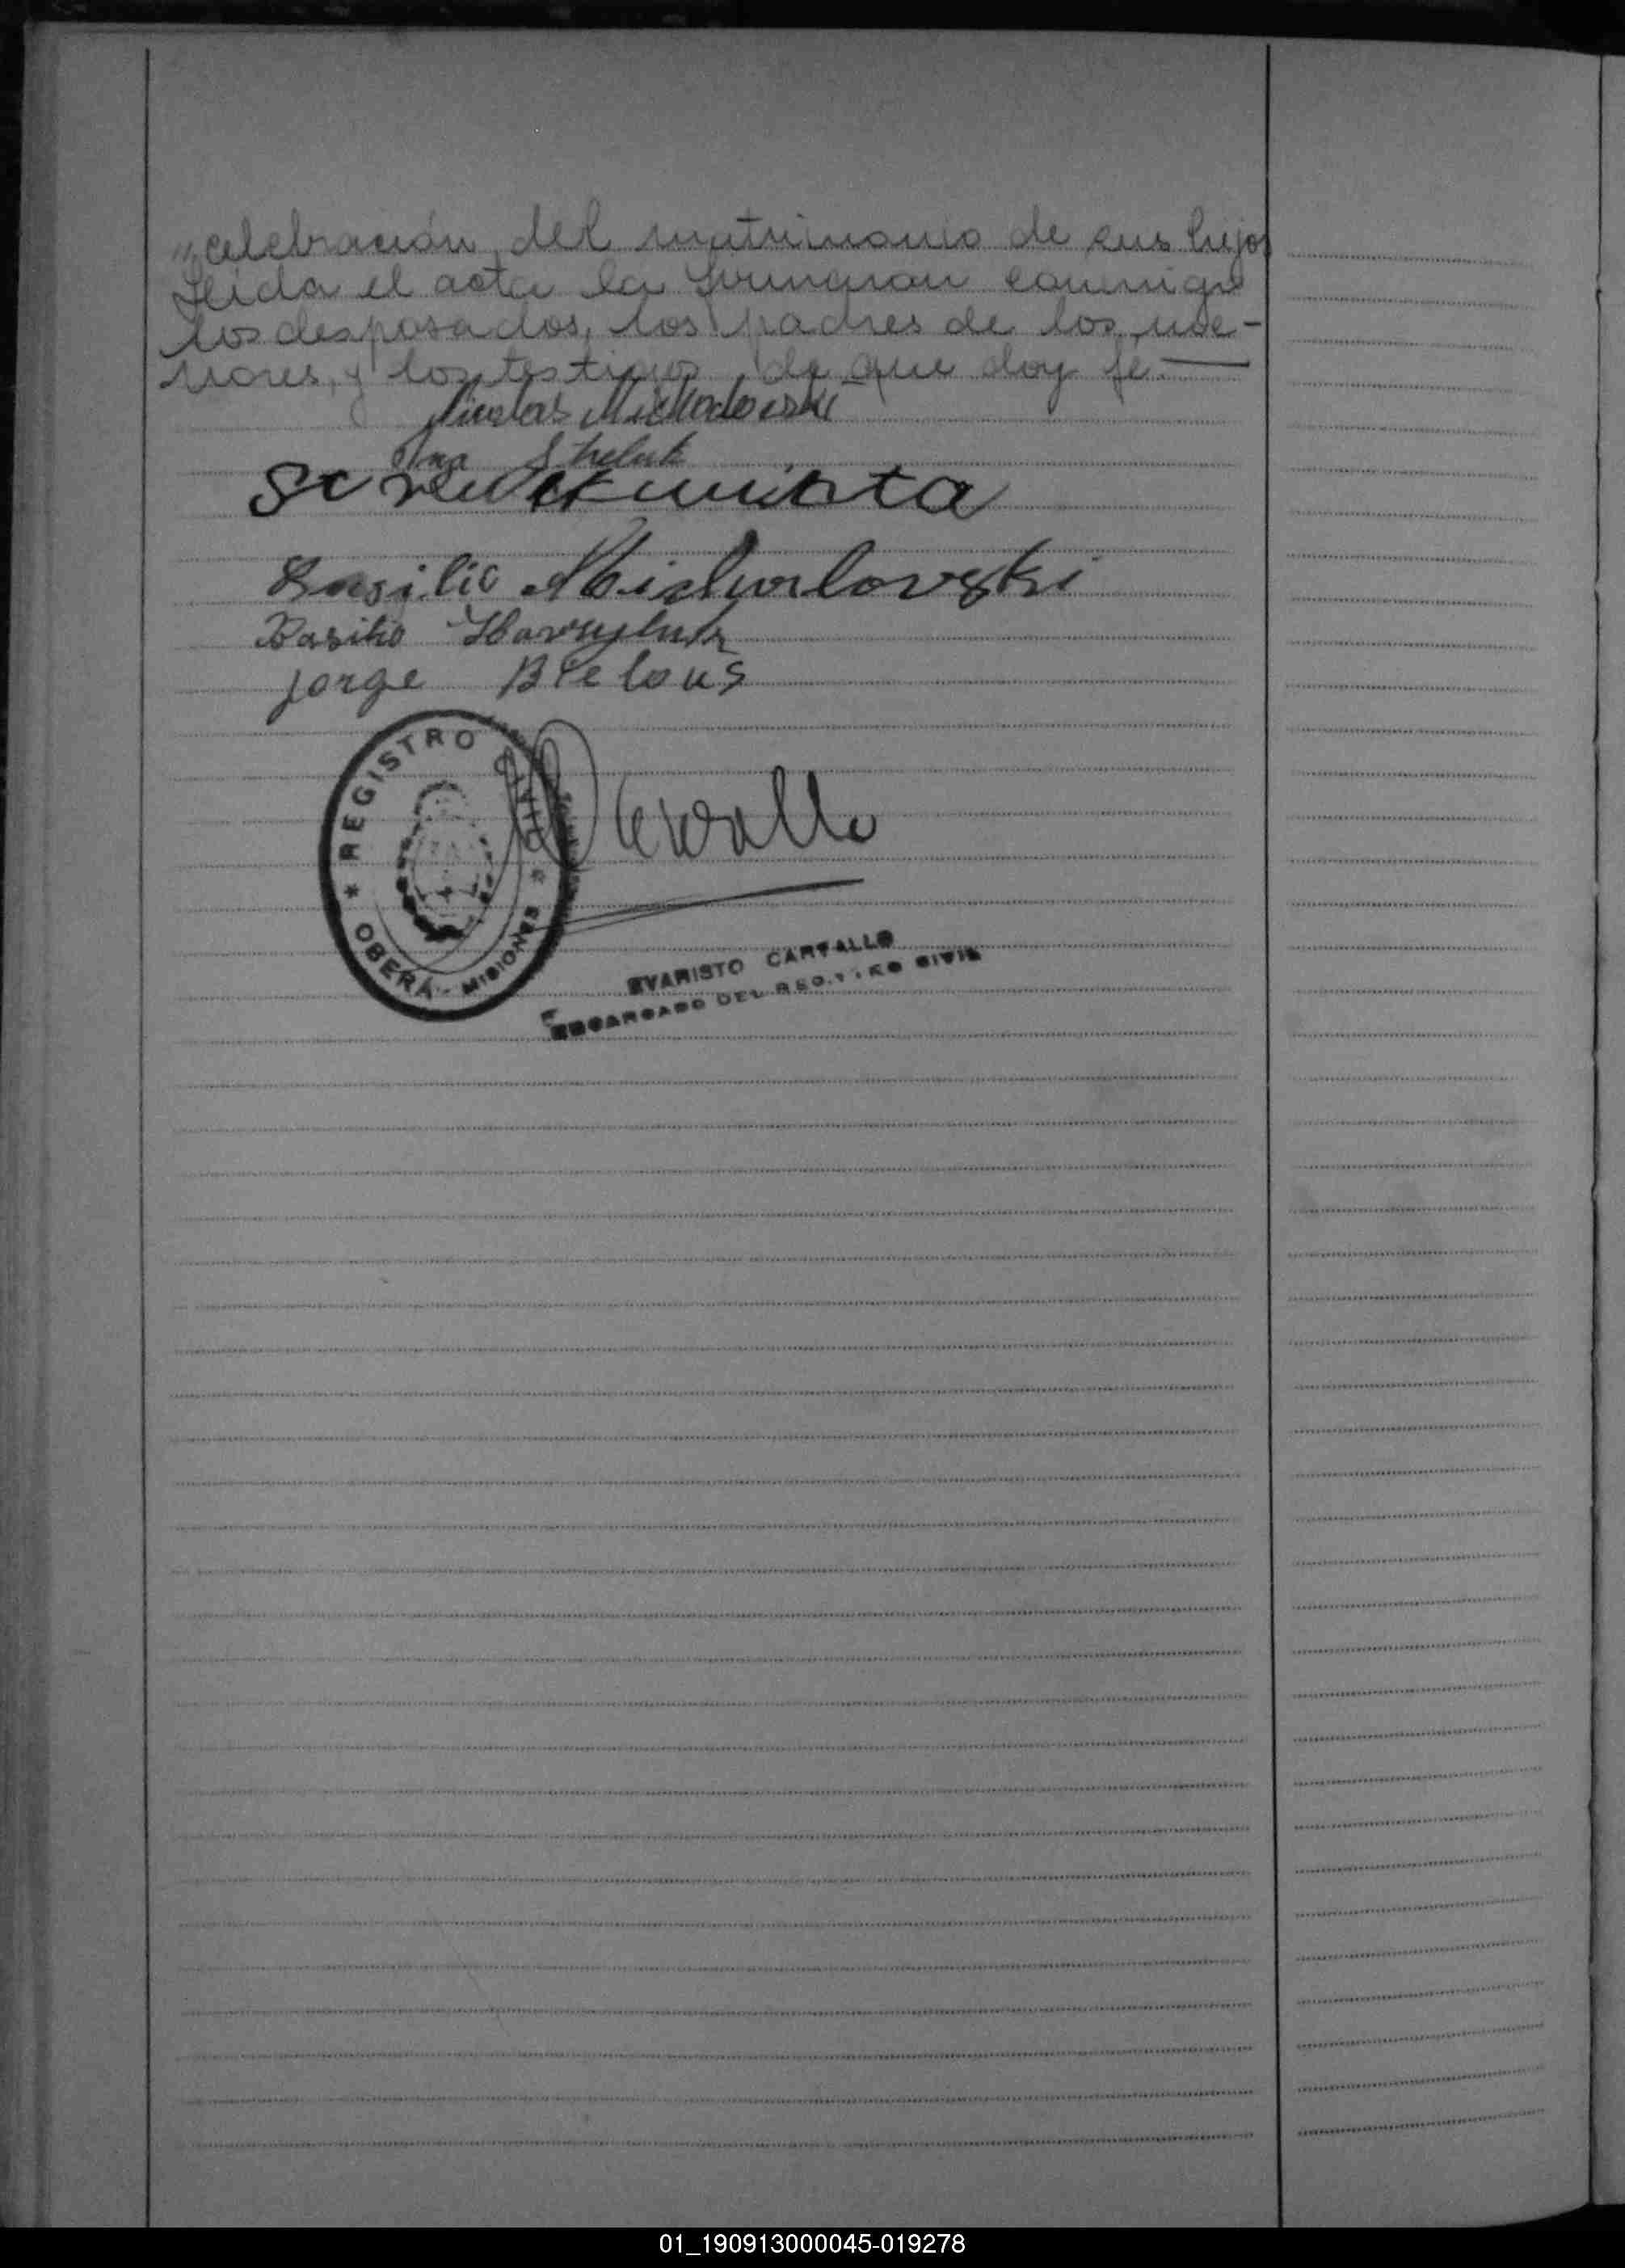 "celebración del matrimonio de sus hijos
Leida el acta la firmaron conmigo
los desposados, los padres de los me-
nores, y los testigos de que doy fé.—
Nicolas
Ana Sheluk
Basilio Michalovski
Basilio Havryluk
Jorge Bielous
REGISTRO CIVIL
* OBERÁ - MISIONES *
Carvallo
EVARISTO CARVALLO
ENCARGADO DEL REGISTRO CIVIL
01_190913000045-019278